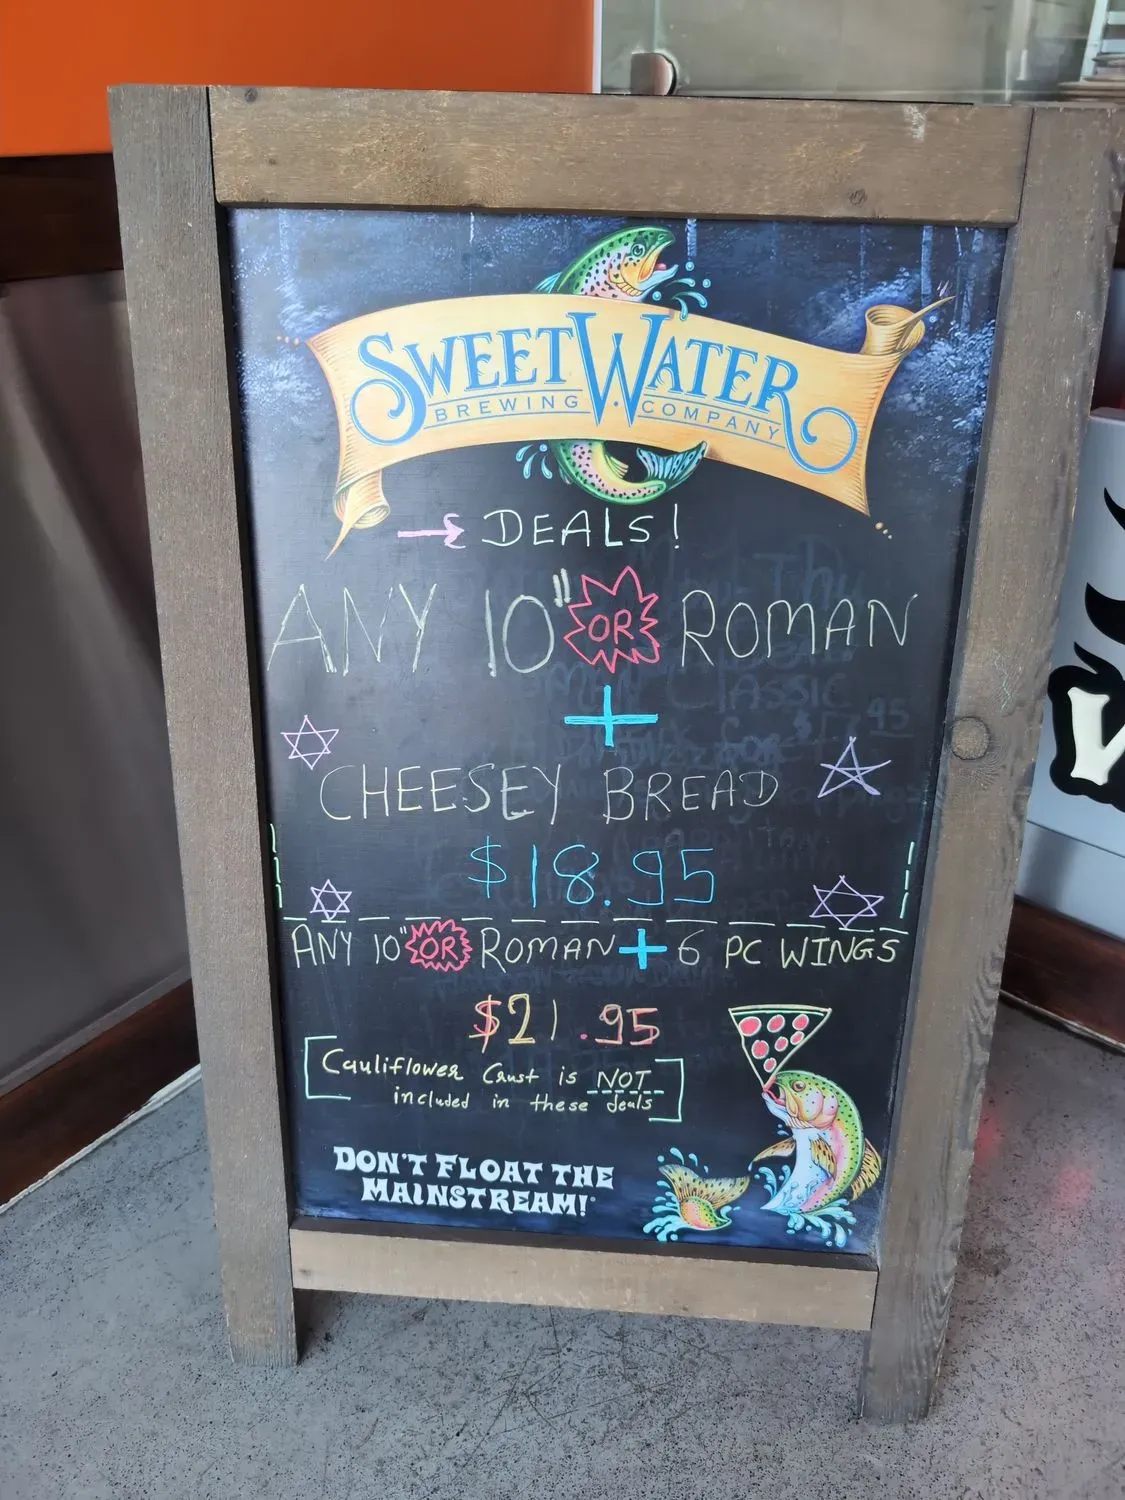 SWEETWATER
BREWING COMPANY
→ DEALS!
ANY 10" OR ROMAN
+
CHEESEY BREAD
$18.95
ANY 10" OR ROMAN + 6 PC WINGS
$21.95
[Cauliflower Crust is NOT
included in these deals]
DON'T FLOAT THE
MAINSTREAM!